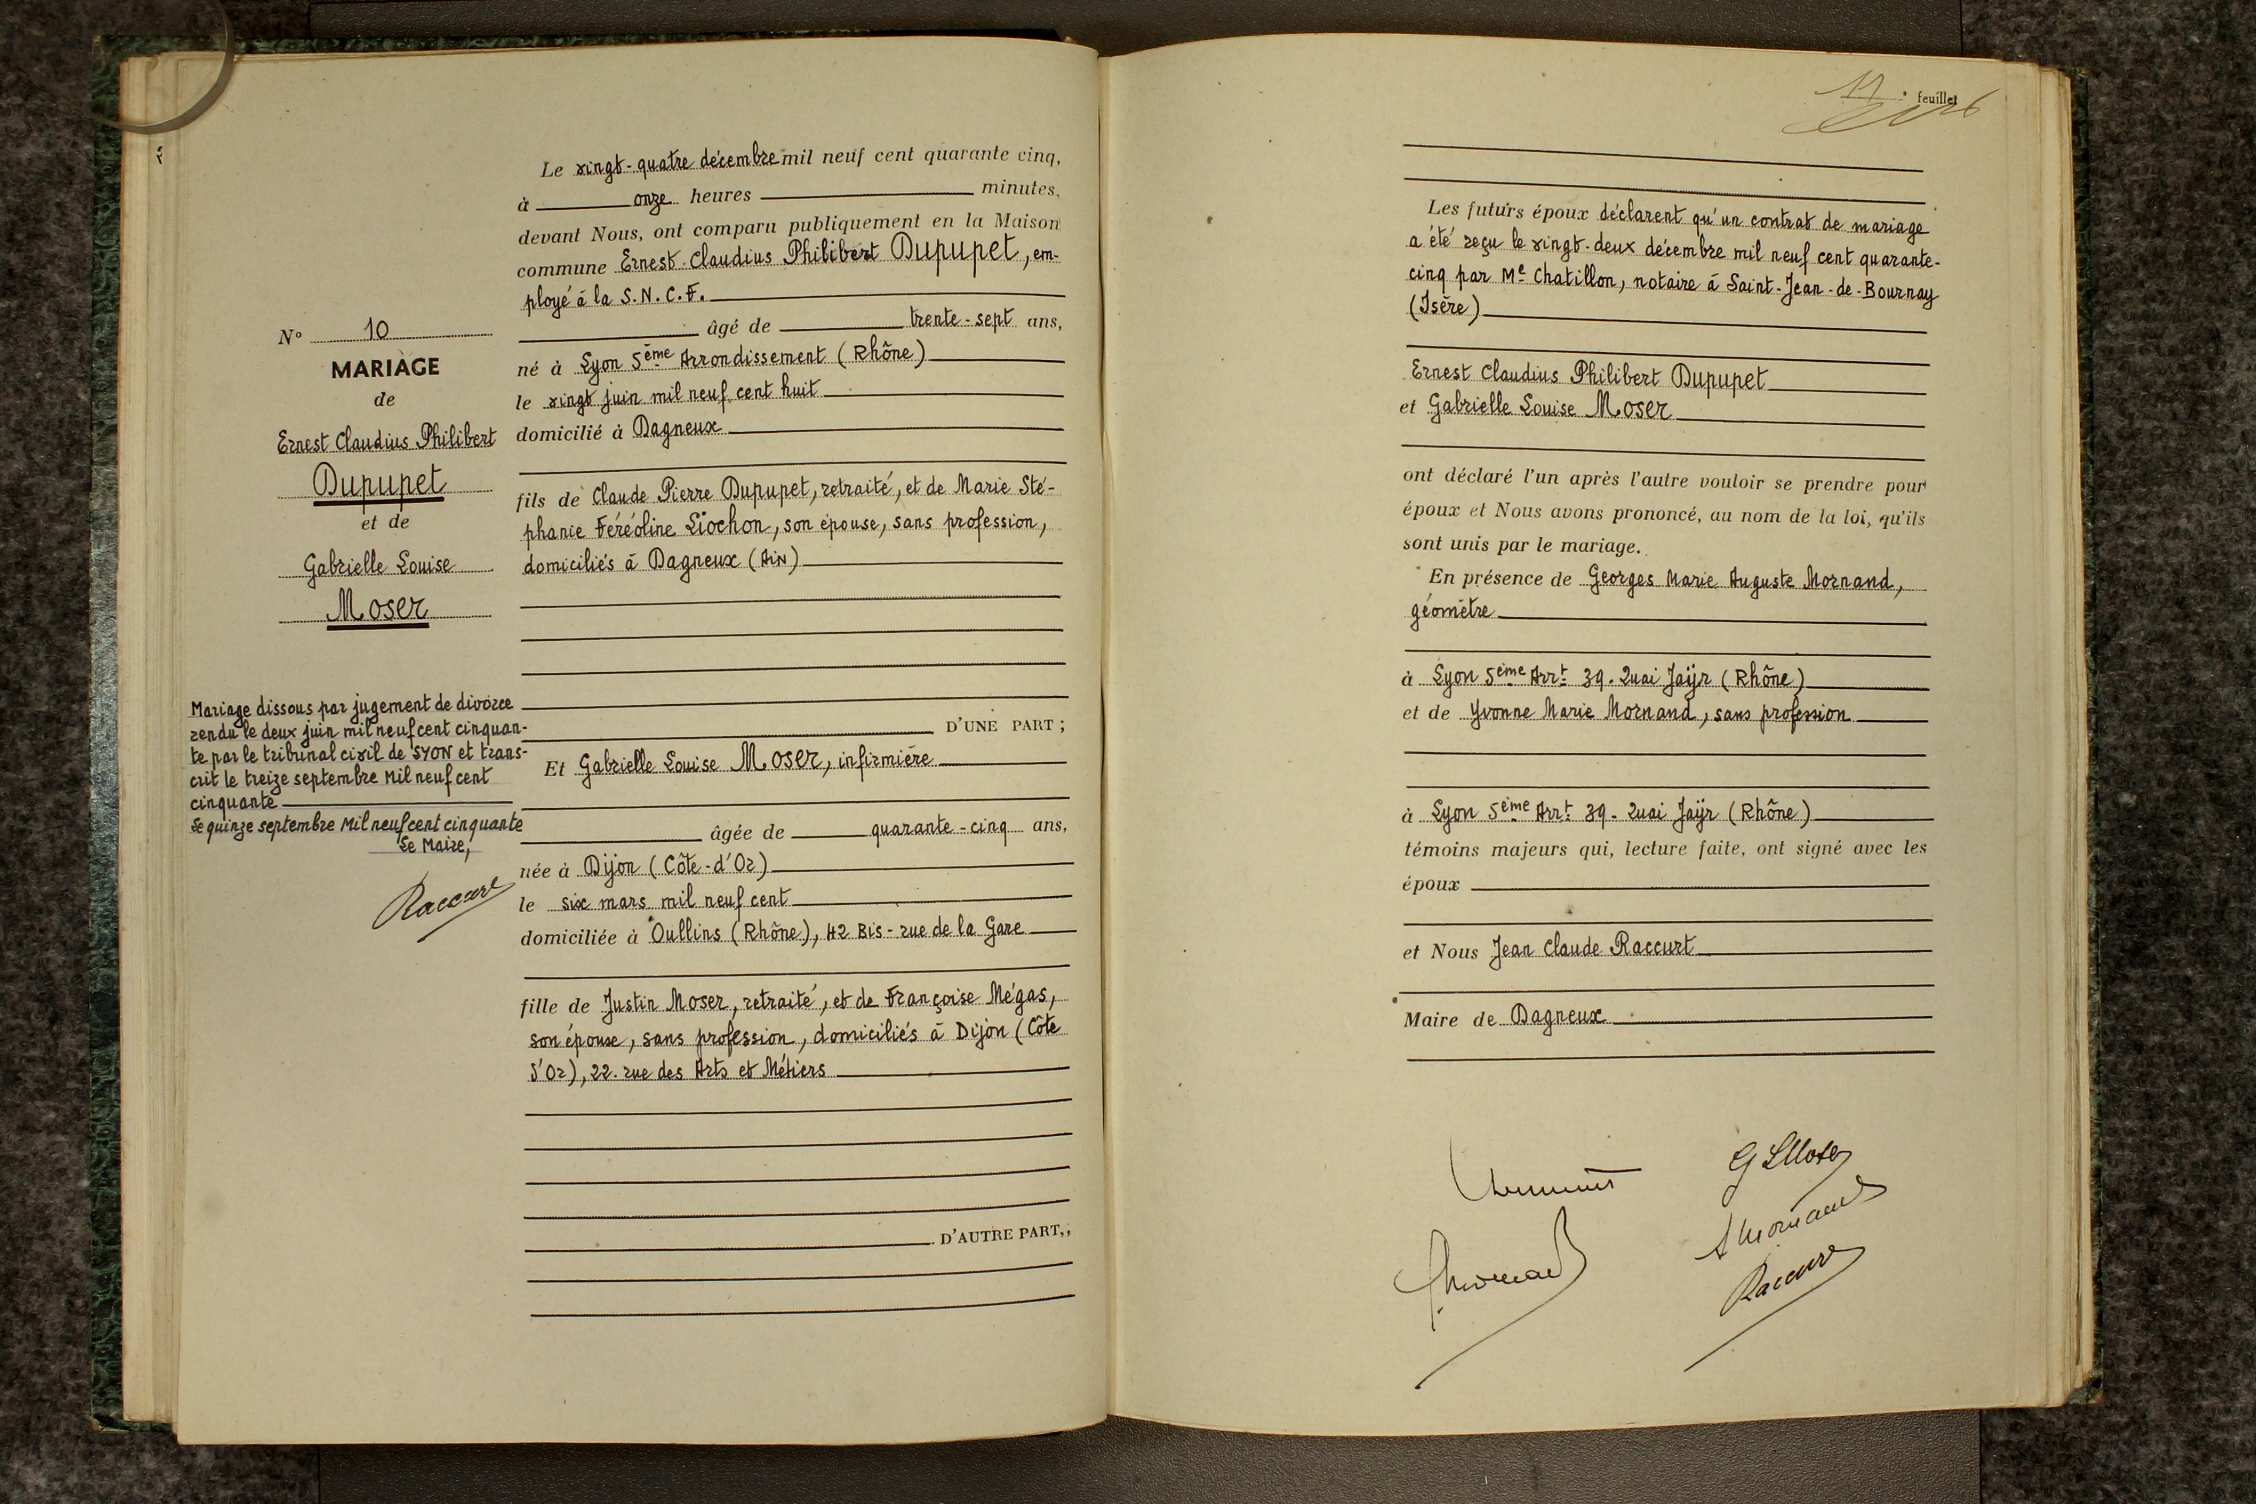 Le vingt-quatre décembre mil neuf cent quarante cinq,
à onze heures minutes,
devant Nous, ont comparu publiquement en la Maison
commune Ernest Claudius Philibert Dupupet, em-
ployé à la S.N.C.F.
âgé de trente-sept ans,
né à Lyon 5ème Arrondissement (Rhône)
le vingt juin mil neuf cent huit
domicilié à Dagneux
fils de Claude Pierre Dupupet, retraité, et de Marie Sté-
phanie Féréoline Liochon, son épouse, sans profession,
domiciliés à Dagneux (Ain)
D'UNE PART ;
Et Gabrielle Louise Moser, infirmière
âgée de quarante-cinq ans,
née à Dijon (Côte-d'Or)
le six mars mil neuf cent
domiciliée à Oullins (Rhône), 42 Bis - rue de la Gare
fille de Justin Moser, retraité, et de Françoise Mégas,
son épouse, sans profession, domiciliés à Dijon (Côte
d'Or), 22. rue des Arts et Métiers
D'AUTRE PART,,
N° 10
MARIAGE
de
Ernest Claudius Philibert
Dupupet
et de
Gabrielle Louise
Moser
Mariage dissous par jugement de divorce
rendu le deux juin mil neuf cent cinquan-
te par le tribunal civil de LYON et trans-
crit le treize septembre Mil neuf cent
cinquante
Le quinze septembre Mil neuf cent cinquante
Le Maire,
Raccurt
feuillet
Les futurs époux déclarent qu'un contrat de mariage
a été reçu le vingt-deux décembre mil neuf cent quarante-
cinq par Me Chatillon, notaire à Saint-Jean-de-Bournay
(Isère)
Ernest Claudius Philibert Dupupet
et Gabrielle Louise Moser
ont déclaré l'un après l'autre vouloir se prendre pour
époux et Nous avons prononcé, au nom de la loi, qu'ils
sont unis par le mariage.
En présence de Georges Marie Auguste Mornand,
géomètre
à Lyon 5ème Arrt 39. Quai Jaÿr (Rhône)
et de Yvonne Marie Mornand, sans profession
à Lyon 5ème Arrt 39. Quai Jaÿr (Rhône)
témoins majeurs qui, lecture faite, ont signé avec les
époux
et Nous Jean Claude Raccurt
Maire de Dagneux
G L Moser
Mornand
Raccurt